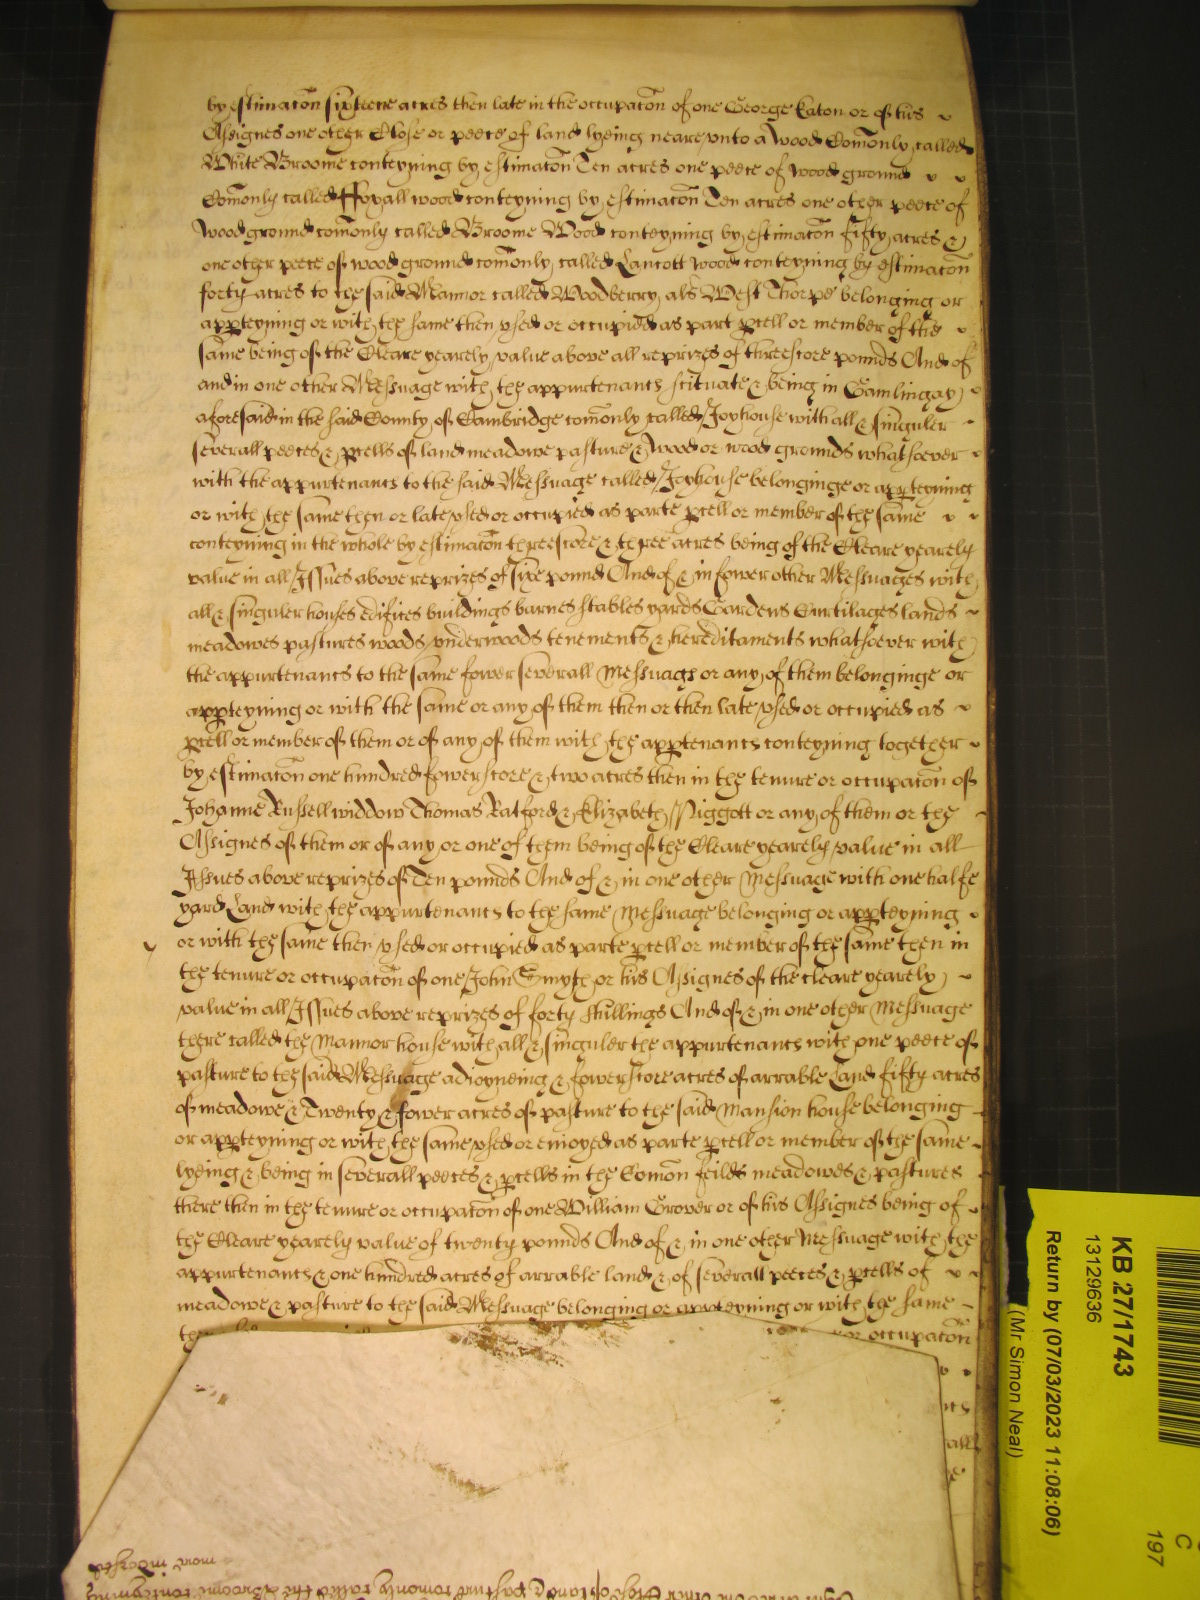 by estimacon sixteene acres then late in the occupacon of one George Eaton or of his
Assignes one other Close or peece of land lyeing neare vnto a wood Comonly called
White Broome conteyning by estimacon Ten acres one peece of wood ground
Comonly called ffoxall wood conteyning by estimacon Ten acres one other peece of
wood ground comonly called Broome Wood conteyning by estimacon fifty acres &
one other peece of wood ground comonly called Lancott wood conteyning by estimacon
forty acres to the said Mannor called Woodberry als West Thorpe belonging or
appteyning or with the same then vsed or occupied as part pcell or member of the
same being of the Cleare yearely value above all reprizes of threescore pounds And of
and in one other Messuage with the appurtenants scituate & being in Gamlingay
aforesaid in the said County of Cambridge comonly called Joyhouse with all & singuler
severall peeces & pcells of land meadowe pasture & wood or wood grounds whatsoever
with the appurtenants to the said Messuage called Joyhouse belonginge or appteyning
or with the same then or late vsed or occupied as parte pcell or member of the same
conteyning in the whole by estimacon threescore & three acres being of the Cleare yearely
value in all Issues above reprizes of sixe pound And of & in fower other Messuages with
all & singuler houses edifices buildings barnes stables yards Gardens Curtilages lands
meadowes pastures woods vnderwoods tenements & hereditaments whatsoever with
the appurtenants to the same fower severall Messuags or any of them belonginge or
appteyning or with the same or any of them then or then late vsed or occupied as
pcell or member of them or of any of them with the apptenants conteyning together
by estimacon one hundred fowerscore & two acres then in the tenure or occupacon of
Johanne Russell widdow Thomas Ratford & Elizabeth Piggott or any of them or the
Assignes of them or of any or one of them being of the Cleare yearely value in all
Issues above reprizes of Ten pounds And of & in one other Messuage with one halfe
yard Land with the appurtenants to the same Messuage belonging or appteyning
or with the same then vsed or occupied as parte pcell or member of the same then in
the tenure or occupacon of one John Smyth or his Assignes of the cleare yearely
value in all Issues above reprizes of forty shillings And of & in one other Messuage
there called the Mannor house with all & singuler the appurtenants with one peece of
pasture to the said Messuage adioyneing & fowerscore acres of arrable Land fifty acres
of meadowe & Twenty & fower acres of pasture to the said Mansion house belonging
or appteyning or with the same vsed or enioyed as parte pcell or member of the same
lyeing & being in severall peeces & pcells in the Comon feilds meadowes & pastures
there then in the tenure or occupacon of one William Grover or of his Assignes being of
the Cleare yearely value of twenty pounds And of & in one other Messuage with the
appurtenants & one hundred acres of arrable land & of severall peeces & pcells of
meadowe & pasture to the said Messuage belonging or appteyning or with the same
or occupacon
KB 27/1743
13129636
Return by (07/03/2023 11:08:06)
(Mr Simon Neal)
C
197